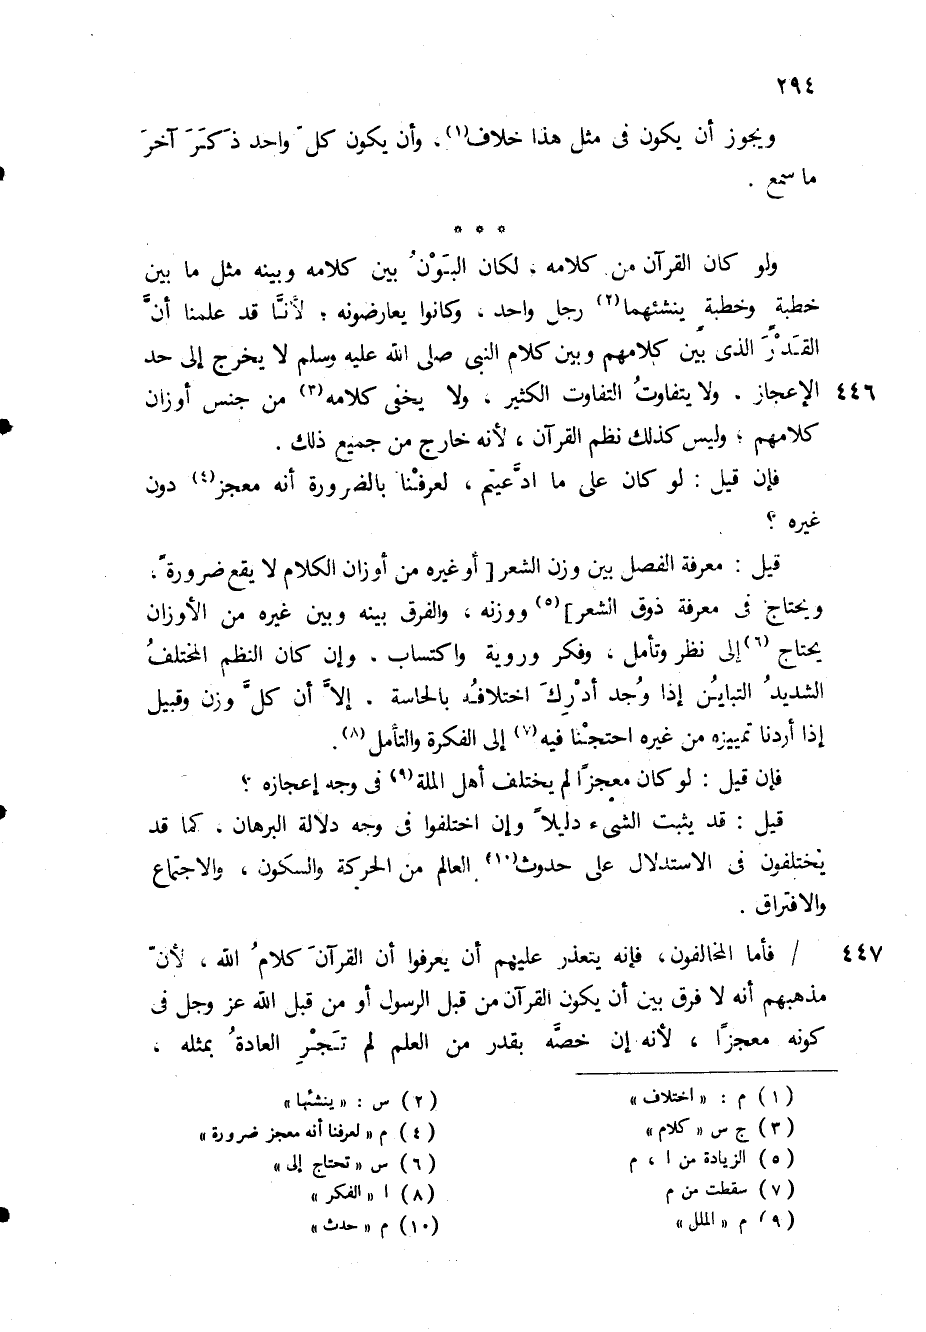 ٢٩٤
ويجوز أن يكون فى مثل هذا خلاف(١). وأن يكون كلّ واحد ذَكَرَ آخرَ
ما سمع .
* * *
ولو كان القرآن من كلامه ، لكان البَوْنُ بين كلامه وبينه مثل ما بين
خطبةٍ وخطبةٍ ينشئهما(٢) رجل واحد ، وكانوا يعارضونه ؛ لأنَّا قد علمنا أنَّ
القَدْرَ الذى بين كلامهم وبين كلام النبى صلى الله عليه وسلم لا يخرج إلى حد
٤٤٦ الإعجاز . ولا يتفاوتُ التفاوت الكثير ، ولا يخفى كلامه(٣) من جنس أوزان
كلامهم ؛ وليس كذلك نظم القرآن ، لأنه خارج من جميع ذلك .
فإن قيل : لو كان على ما ادَّعيتم ، لعرفْنا بالضرورة أنه معجز(٤) دون
غيره ؟
قيل : معرفة الفصل بين وزن الشعر [ أو غيره من أوزان الكلام لا يقع ضرورةً ،
ويحتاج فى معرفة ذوق الشعر ](٥) ووزنه ، والفرق بينه وبين غيره من الأوزان
يحتاج (٦)إلى نظر وتأمل ، وفكر وروية واكتساب . وإن كان النظم المختلفُ
الشديدُ التباينُ إذا وُجد أدْرِكَ اختلافُه بالحاسة . إلاَّ أن كلَّ وزن وقبيل
إذا أردنا تمييزه من غيره احتجْنا فيه(٧) إلى الفكرة والتأمل(٨).
فإن قيل : لو كان معجزًا لم يختلف أهل الملة(٩) فى وجه إعجازه ؟
قيل : قد يثبت الشىء دليلاً وإن اختلفوا فى وجه دلالة البرهان . كما قد
يختلفون فى الاستدلال على حدوث(١٠) العالم من الحركة والسكون ، والاجتماع
والافتراق .
٤٤٧ / فأما المخالفون، فإنه يتعذر عليهم أن يعرفوا أن القرآنَ كلامُ الله ، لأنّ
مذهبهم أنه لا فرق بين أن يكون القرآن من قبل الرسول أو من قبل الله عز وجل فى
كونه معجزًا ، لأنه إن خصَّه بقدر من العلم لم تَجْرِ العادةُ بمثله ،
(١) م : « اختلاف » (٢) س : « ينشئها »
(٣) ج س « كلام » (٤) م « لعرفنا أنه معجز ضرورة »
(٥) الزيادة من ا ، م (٦) س « تحتاج إلى »
(٧) سقطت من م (٨) ا « الفكر »
(٩) م « الملل » (١٠) م « حدث »